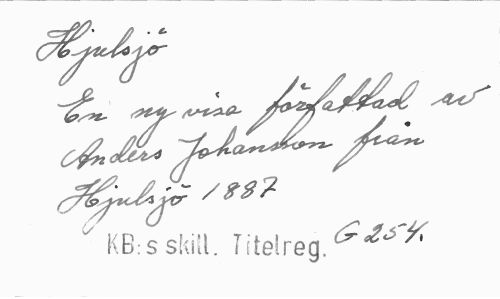 Hjulsjö
En ny visa författad av
Anders Johansson från
Hjulsjö 1887
KB:s skill. Titelreg. G 254.